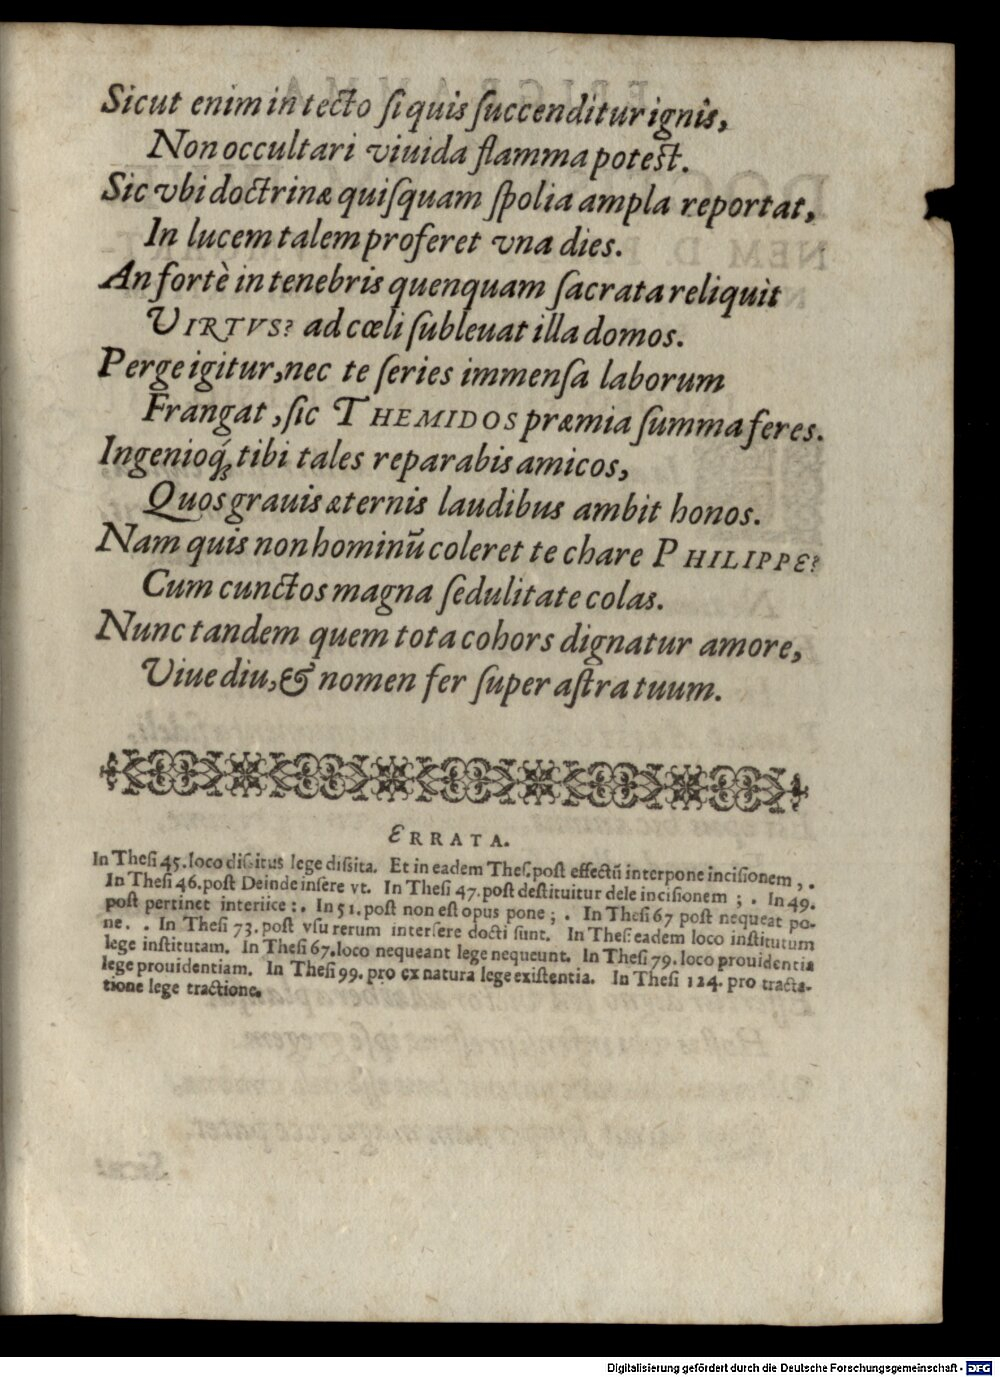 Sicut enim in tecto ſi quis ſuccenditur ignis,
Non occultari viuida flamma poteſt.
Sic vbi doctrinæ quiſquam ſpolia ampla reportat,
In lucem talem proferet vna dies.
An fortè in tenebris quenquam ſacrata reliquit
VIRTVS? ad cœli ſubleuat illa domos.
Perge igitur, nec te ſeries immenſa laborum
Frangat, ſic THEMIDOS præmia ſumma feres.
Ingenioq́; tibi tales reparabis amicos,
Quos grauis æternis laudibus ambit honos.
Nam quis non hominū coleret te chare PHILIPPE?
Cum cunctos magna ſedulitate colas.
Nunc tandem quem tota cohors dignatur amore,
Viue diu, & nomen fer ſuper aſtra tuum.
ERRATA.
In Theſi 45. loco diſsitus lege diſsita. Et in eadem Theſ. poſt effectū interpone inciſionem , .
In Theſi 46. poſt Deinde inſere vt. In Theſi 47. poſt deſtituitur dele inciſionem ; . In 49.
poſt pertinet interiice : . In 51. poſt non eſt opus pone ; . In Theſi 67 poſt nequeat po-
ne . . In Theſi 73. poſt vſu rerum interſere docti ſunt. In Theſ. eadem loco inſtitutum
lege inſtitutam. In Theſi 67. loco nequeant lege nequeunt. In Theſi 79. loco prouidentia
lege prouidentiam. In Theſi 99. pro ex natura lege exiſtentia. In Theſi 124. pro tracta-
tione lege tractione.
Digitalisierung gefördert durch die Deutsche Forschungsgemeinschaft - DFG